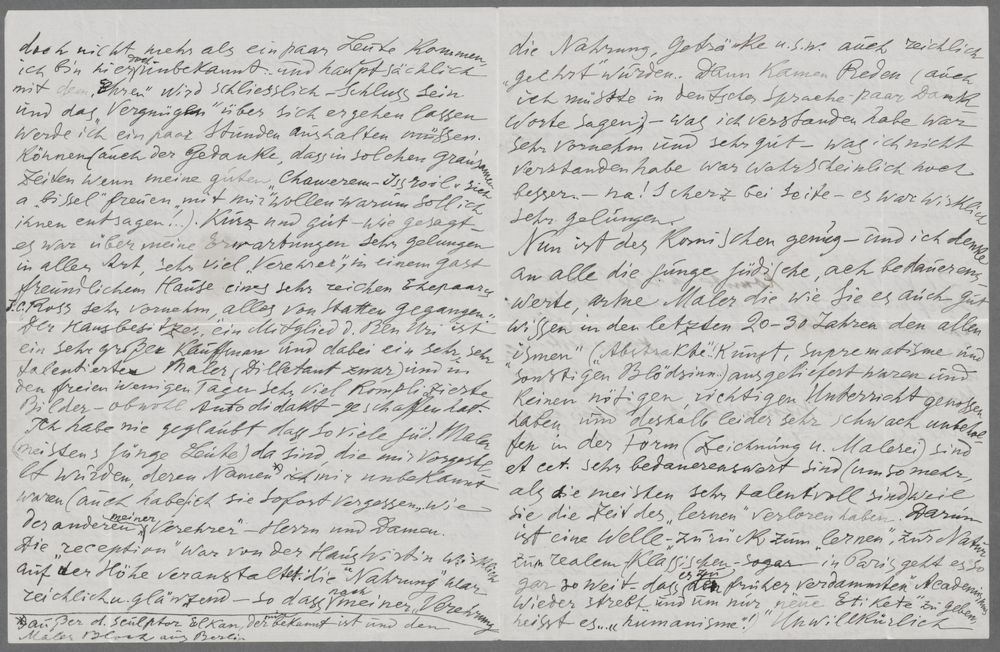 doch nicht mehr als ein paar Leute kommen,
ich bin hier unbekannt und hauptsächlich
mit dem „Ehren" wird schliesslich – Schluss sein
und das „Vergnügen" über sich ergehen lassen
werde ich ein paar Stunden aushalten müssen.
Können (auch der Gedanke, dass in solchen grausamen
Zeiten wenn meine guten „Chawerem – Issroil" sich
a „bissel" freuen „mit mir" wollen warum soll ich
ihnen entsagen!..) Kurz und gut – wie gesagt –
es war über meine Erwartungen sehr gelungen
in aller Art, sehr viel „Verehrer", in einem gast
freundlichem Hause eines sehr reichen Ehepaares
J.C. Ross sehr vornehm alles von statten gegangen.
Der Hausbesitzer, ein Mitglied d. Ben Uri ist
ein sehr großer Kaufman und dabei ein sehr, sehr
talentierter Maler, (Dilletant zwar) und in
den freien wenigen Tagen sehr viel komplizierte
Bilder – obwohl Autodidakt – geschaffen hat.
Ich habe nie geglaubt dass so viele jüd. Maler
(meistens junge Leute) da sind die mir vorgestel
lt würden, deren Namen *) mir unbekannt
waren (auch habe ich sie sofort vergessen, wie
der anderen meiner „Verehrer" – Herrn und Damen.
Die „reception" war von der Hauswirtin wirklich
auf der Höhe veranstaltet. die „Nahrung" war
reichlich u. glänzend – so dass nach meiner „Verehrung
*) außer d. sculptor Elkan, der bekannt ist und den
Maler Bloch aus Berlin
die Nahrung, Getränke u.s.w. auch reichlich
„geehrt" würden. Dann kamen Reden (auch
ich müsste in deutscher Sprache paar Dank
worte sagen) – was ich verstanden habe war
sehr vornehm und sehr gut – was ich nicht
verstanden habe war wahrscheinlich noch
besser. – na! Scherz bei Seite – es war wirklich
sehr gelungen.
Nun ist des Komischen genug – und ich denke
an alle die junge jüdische, ach bedauerens-
werte, arme Maler die wie Sie es auch gut
wissen in den letzten 20-30 Jahren den allen
„ismen" („Abstrakte" Kunst, Suprematisme und
„sonstigen Blödsinn") ausgeliefert waren und
keinen nötigen richtigen Unterricht genossen
haben und deshalb leider sehr schwach unbehol
fen in der Form (Zeichnung u. Malerei) sind
et cet. sehr bedauerenswert sind (umsomehr,
als die meisten sehr talentvoll sind) weil
sie die Zeit des „lernen" verloren haben. Darum
ist eine Welle – „zurück" zum „lernen", zur Natur
zum realem (Klassischen – sogar in Paris geht es so
gar so weit dass er zur „früher verdammten" Academismus
wieder strebt und um nur „neue Etikete" zu geben,
heisst es... „humanisme"!) Unwillkürlich